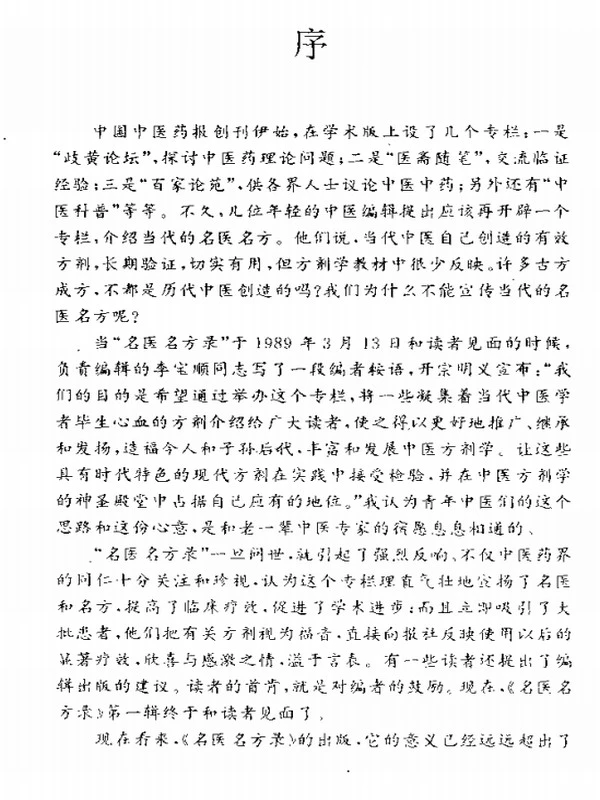 序
中国中医药报创刊伊始，在学术版上设了几个专栏：一是
“歧黄论坛”，探讨中医药理论问题；二是“医斋随笔”，交流临证
经验；三是“百家论苑”，供各界人士议论中医中药；另外还有“中
医科普”等等。不久，几位年轻的中医编辑提出应该再开辟一个
专栏，介绍当代的名医名方。他们说，当代中医自己创造的有效
方剂，长期验证，切实有用，但方剂学教材中很少反映。许多古方
成方，不都是历代中医创造的吗？我们为什么不能宣传当代的名
医名方呢？
当“名医名方录”于1989年3月13日和读者见面的时候，
负责编辑的李宝顺同志写了一段编者按语，开宗明义宣布：“我
们的目的是希望通过举办这个专栏，将一些凝集着当代中医学
者毕生心血的方剂介绍给广大读者，使之得以更好地推广、继承
和发扬，造福今人和子孙后代，丰富和发展中医方剂学。让这些
具有时代特色的现代方剂在实践中接受检验，并在中医方剂学
的神圣殿堂中占据自己应有的地位。”我认为青年中医们的这个
思路和这份心意，是和老一辈中医专家的宿愿息息相通的。
“名医名方录”一旦问世，就引起了强烈反响。不仅中医药界
的同仁十分关注和珍视，认为这个专栏理直气壮地宣扬了名医
和名方，提高了临床疗效，促进了学术进步；而且立即吸引了大
批患者，他们把有关方剂视为福音，直接向报社反映使用以后的
显著疗效，欣喜与感激之情，溢于言表。有一些读者还提出了编
辑出版的建议。读者的首肯，就是对编者的鼓励。现在，《名医名
方录》第一辑终于和读者见面了。
现在看来，《名医名方录》的出版，它的意义已经远远超出了